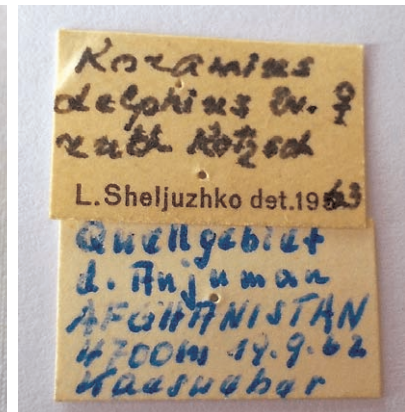 Koramius
delphius Ev. ♀
ruth Kotzsch
L.Sheljuzhko det.1963
Quellgebiet
d. Anjuman
AFGHANISTAN
4700m 19.9.62